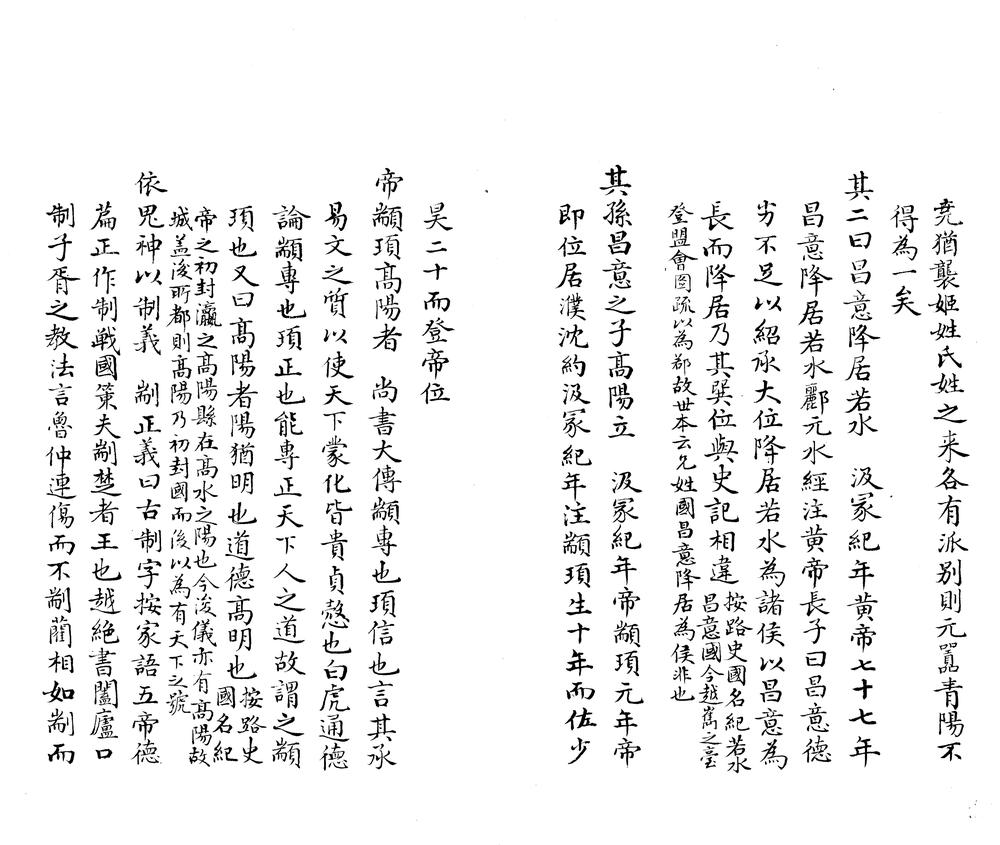 堯猶襲姬姓氏姓之来各有派别則元嚣青陽不
得為一矣
其二曰昌意降居若水　汲冢紀年黄帝七十七年
昌意降居若水酈元水經注黄帝長子曰昌意德
劣不足以紹承大位降居若水為諸侯以昌意為
長而降居乃其巽位與史記相違按路史國名紀若水
昌意國今越嶲之臺
登盟會圖疏以為鄀故世本云允姓國昌意降居為侯非也
其孫昌意之子高陽立　汲冢紀年帝顓頊元年帝
即位居濮沈約汲冢紀年注顓頊生十年而佐少
昊二十而登帝位
帝顓頊高陽者　尚書大傳顓專也頊信也言其承
易文之質以使天下蒙化皆貴貞慤也白虎通德
論顓專也頊正也能專正天下人之道故謂之顓
頊也又曰高陽者陽猶明也道德高明也按路史
國名紀
帝之初封瀛之高陽縣在高水之陽也今浚儀亦有高陽故
城盖浚所都則高陽乃初封國而後以為有天下之號
依鬼神以制義　制正義曰古制字按家語五帝德
篇正作制戰國策夫制楚者王也越絶書闔廬口
制子胥之教法言魯仲連傷而不制藺相如制而